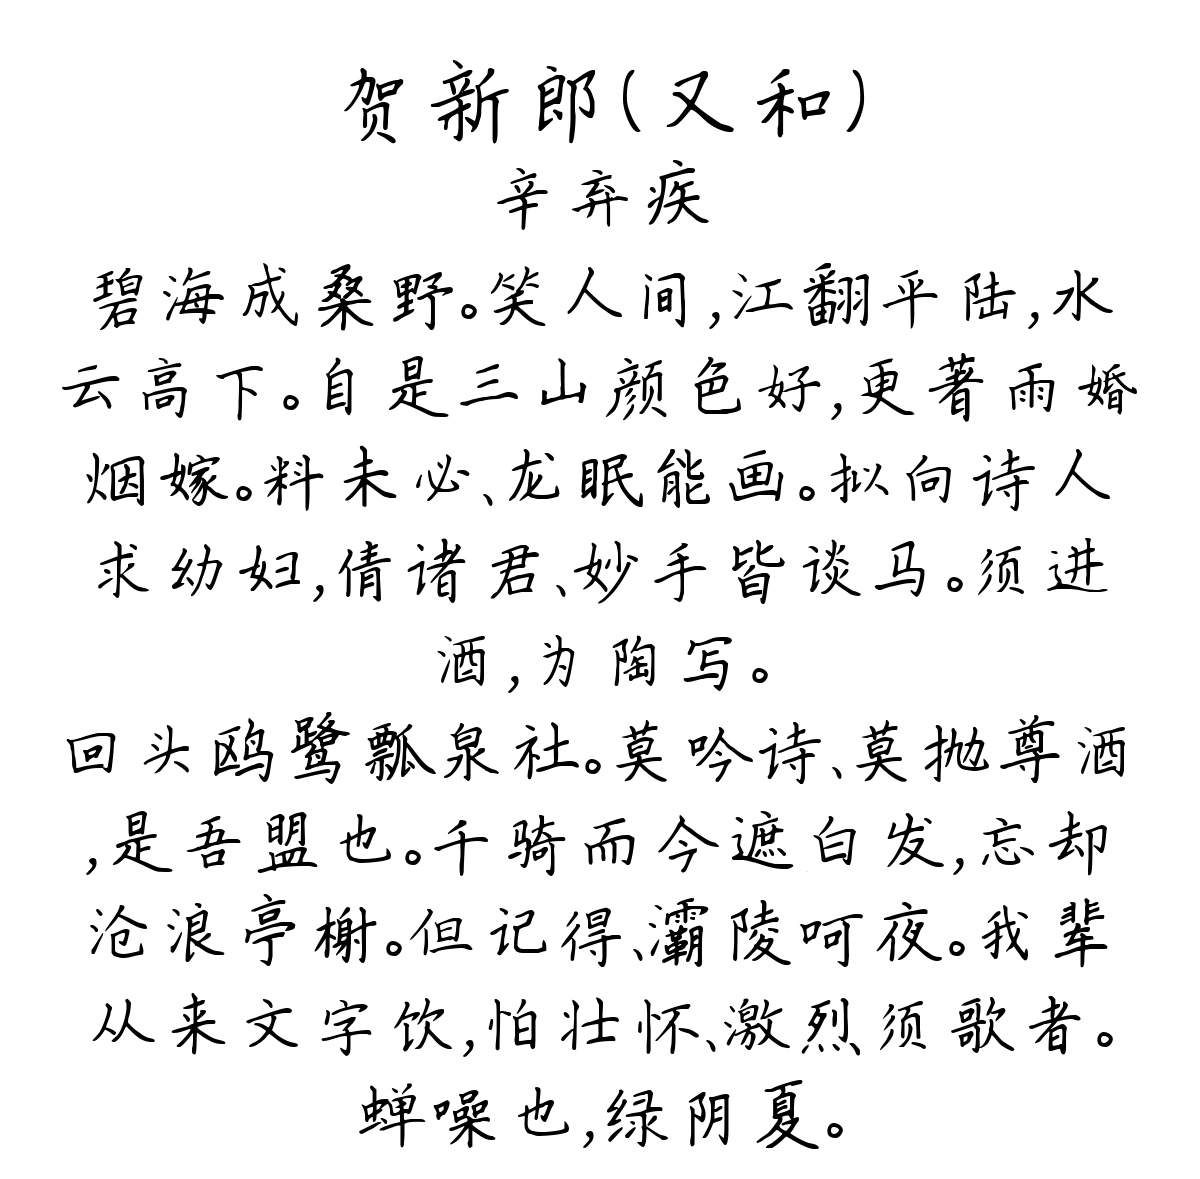 贺新郎(又和)
辛弃疾
碧海成桑野。笑人间,江翻平陆,水
云高下。自是三山颜色好,更著雨婚
烟嫁。料未必、龙眠能画。拟向诗人
求幼妇,倩诸君、妙手皆谈马。须进
酒,为陶写。
回头鸥鹭瓢泉社。莫吟诗、莫抛尊酒
,是吾盟也。千骑而今遮白发,忘却
沧浪亭榭。但记得、灞陵呵夜。我辈
从来文字饮,怕壮怀、激烈须歌者。
蝉噪也,绿阴夏。